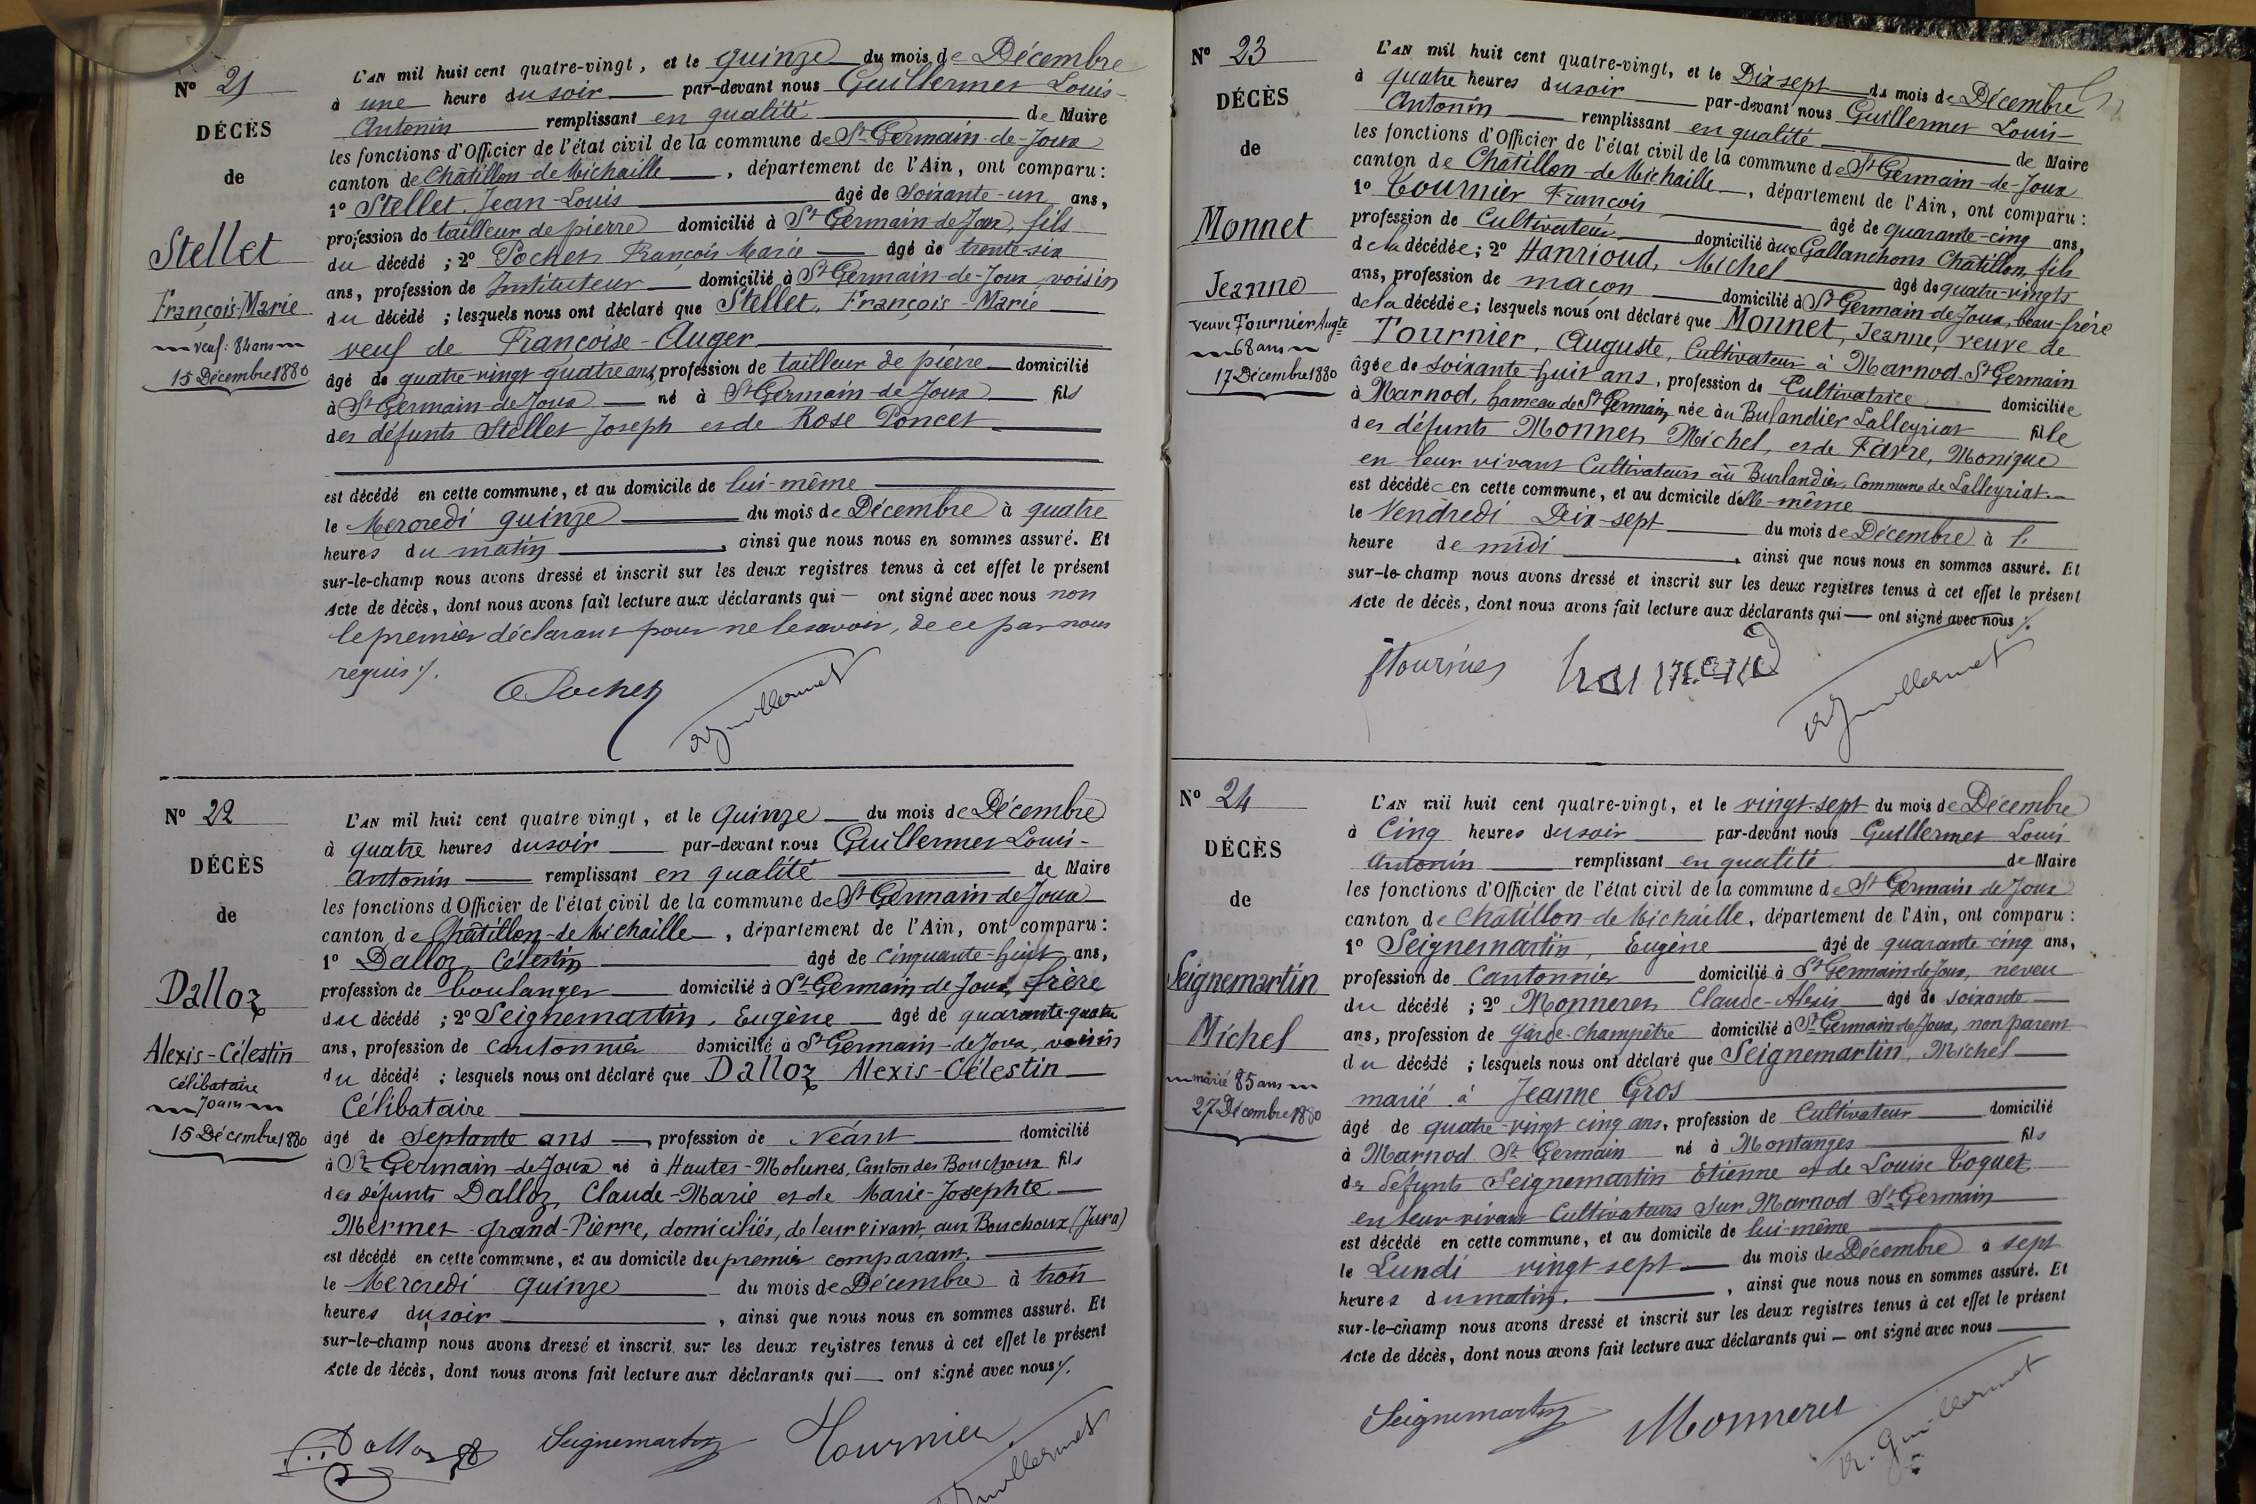 N° 21
DÉCÈS
de
Stellet
François-Marie
veuf: 84 ans
15 Décembre 1880
L'AN mil huit cent quatre-vingt, et le quinze du mois de Décembre
à une heure du soir par-devant nous Guillermet Louis-
Antonin remplissant en qualité de Maire
les fonctions d'Officier de l'état civil de la commune de St Germain-de-Joux
canton de Châtillon-de-Michaille, département de l'Ain, ont comparu:
1° Stellet, Jean-Louis âgé de soixante-un ans,
profession de tailleur de pierre domicilié à St Germain de Joux, fils
du décédé ; 2° Pochet François Marie âgé de trente-six
ans, profession de Instituteur domicilié à St Germain-de-Joux, voisin
du décédé ; lesquels nous ont déclaré que Stellet, François-Marie
veuf de Françoise Auger
âgé de quatre-vingt quatre ans, profession de tailleur de pierre domicilié
à St Germain-de-Joux né à St Germain-de-Joux fils
des défunts Stellet Joseph et de Rose Poncet
est décédé en cette commune, et au domicile de lui-même
le Mercredi quinze du mois de Décembre à quatre
heures du matin, ainsi que nous nous en sommes assuré. Et
sur-le-champ nous avons dressé et inscrit sur les deux registres tenus à cet effet le présent
Acte de décès, dont nous avons fait lecture aux déclarants qui — ont signé avec nous non
le premier déclarant pour ne le savoir, de ce par nous
requis ./.
Pochet
Guillermet
N° 22
DÉCÈS
de
Dalloz
Alexis-Célestin
Célibataire
70 ans
15 Décembre 1880
L'AN mil huit cent quatre-vingt, et le Quinze du mois de Décembre
à quatre heures du soir par-devant nous Guillermet Louis-
Antonin remplissant en qualité de Maire
les fonctions d'Officier de l'état civil de la commune de St Germain-de-Joux
canton de Châtillon-de-Michaille, département de l'Ain, ont comparu:
1° Dalloz, Célestin âgé de cinquante-huit ans,
profession de boulanger domicilié à St Germain-de-Joux, frère
du décédé ; 2° Seignemartin, Eugène âgé de quarante-quatre
ans, profession de cantonnier domicilié à St Germain-de-Joux, voisin
du décédé ; lesquels nous ont déclaré que Dalloz Alexis-Célestin
Célibataire
âgé de septante ans, profession de Néant domicilié
à St Germain-de-Joux né à Hautes-Molunes, Canton des Bouchoux fils
des défunts Dalloz, Claude-Marie et de Marie-Josephte
Mermet-Grand-Pierre, domiciliés, de leur vivant, aux Bouchoux (Jura)
est décédé en cette commune, et au domicile du premier comparant.
le Mercredi quinze du mois de Décembre à trois
heures du soir, ainsi que nous nous en sommes assuré. Et
sur-le-champ nous avons dressé et inscrit sur les deux registres tenus à cet effet le présent
Acte de décès, dont nous avons fait lecture aux déclarants qui — ont signé avec nous ./.
Dalloz Seignemartin Tournier
Guillermet
N° 23
DÉCÈS
de
Monnet
Jeanne
veuve Tournier Augte
68 ans
17 Décembre 1880
L'AN mil huit cent quatre-vingt, et le Dix-sept du mois de Décembre
à quatre heures du soir par-devant nous Guillermet Louis-
Antonin remplissant en qualité de Maire
les fonctions d'Officier de l'état civil de la commune de St Germain-de-Joux
canton de Châtillon-de-Michaille, département de l'Ain, ont comparu:
1° Tournier François âgé de quarante-cinq ans,
profession de Cultivateur domicilié aux Gallanchons Châtillon, fils
de la décédée ; 2° Hanrioud, Michel âgé de quatre-vingts
ans, profession de maçon domicilié à St Germain-de-Joux, beau-frère
de la décédée ; lesquels nous ont déclaré que Monnet, Jeanne, veuve de
Tournier, Auguste, Cultivateur à Marnod-St Germain
âgée de soixante-huit ans, profession de Cultivatrice domiciliée
à Marnod, hameau de St Germain, née au Bulandier Lalleyriat fille
des défunts Monnet, Michel, et de Favre, Monique
en leur vivant Cultivateurs au Burlandier, Commune de Lalleyriat.
est décédée en cette commune, et au domicile d'elle-même
le Vendredi Dix-sept du mois de Décembre à l.
heure de midi, ainsi que nous nous en sommes assuré. Et
sur-le-champ nous avons dressé et inscrit sur les deux registres tenus à cet effet le présent
Acte de décès, dont nous avons fait lecture aux déclarants qui — ont signé avec nous ./.
Tournier
Guillermet
N° 24
DÉCÈS
de
Seignemartin
Michel
marié 85 ans
27 Décembre 1880
L'AN mil huit cent quatre-vingt, et le vingt-sept du mois de Décembre
à Cinq heures du soir par-devant nous Guillermet Louis
Antonin remplissant en qualité de Maire
les fonctions d'Officier de l'état civil de la commune de St Germain de Joux
canton de Châtillon-de-Michaille, département de l'Ain, ont comparu:
1° Seignemartin, Eugène âgé de quarante-cinq ans,
profession de cantonnier domicilié à St Germain-de-Joux, neveu
du décédé ; 2° Monneret Claude-Alexis âgé de soixante
ans, profession de garde-champêtre domicilié à St Germain-de-Joux, non parent
du décédé ; lesquels nous ont déclaré que Seignemartin, Michel
marié à Jeanne Gros
âgé de quatre-vingt cinq ans, profession de Cultivateur domicilié
à Marnod St Germain né à Montanges fils
de défunts Seignemartin Etienne et de Louise Coquet
en leur vivant Cultivateurs sur Marnod St Germain
est décédé en cette commune, et au domicile de lui-même
le Lundi vingt-sept du mois de Décembre à sept
heures du matin, ainsi que nous nous en sommes assuré. Et
sur-le-champ nous avons dressé et inscrit sur les deux registres tenus à cet effet le présent
Acte de décès, dont nous avons fait lecture aux déclarants qui — ont signé avec nous
Seignemartin Monneret
Guillermet